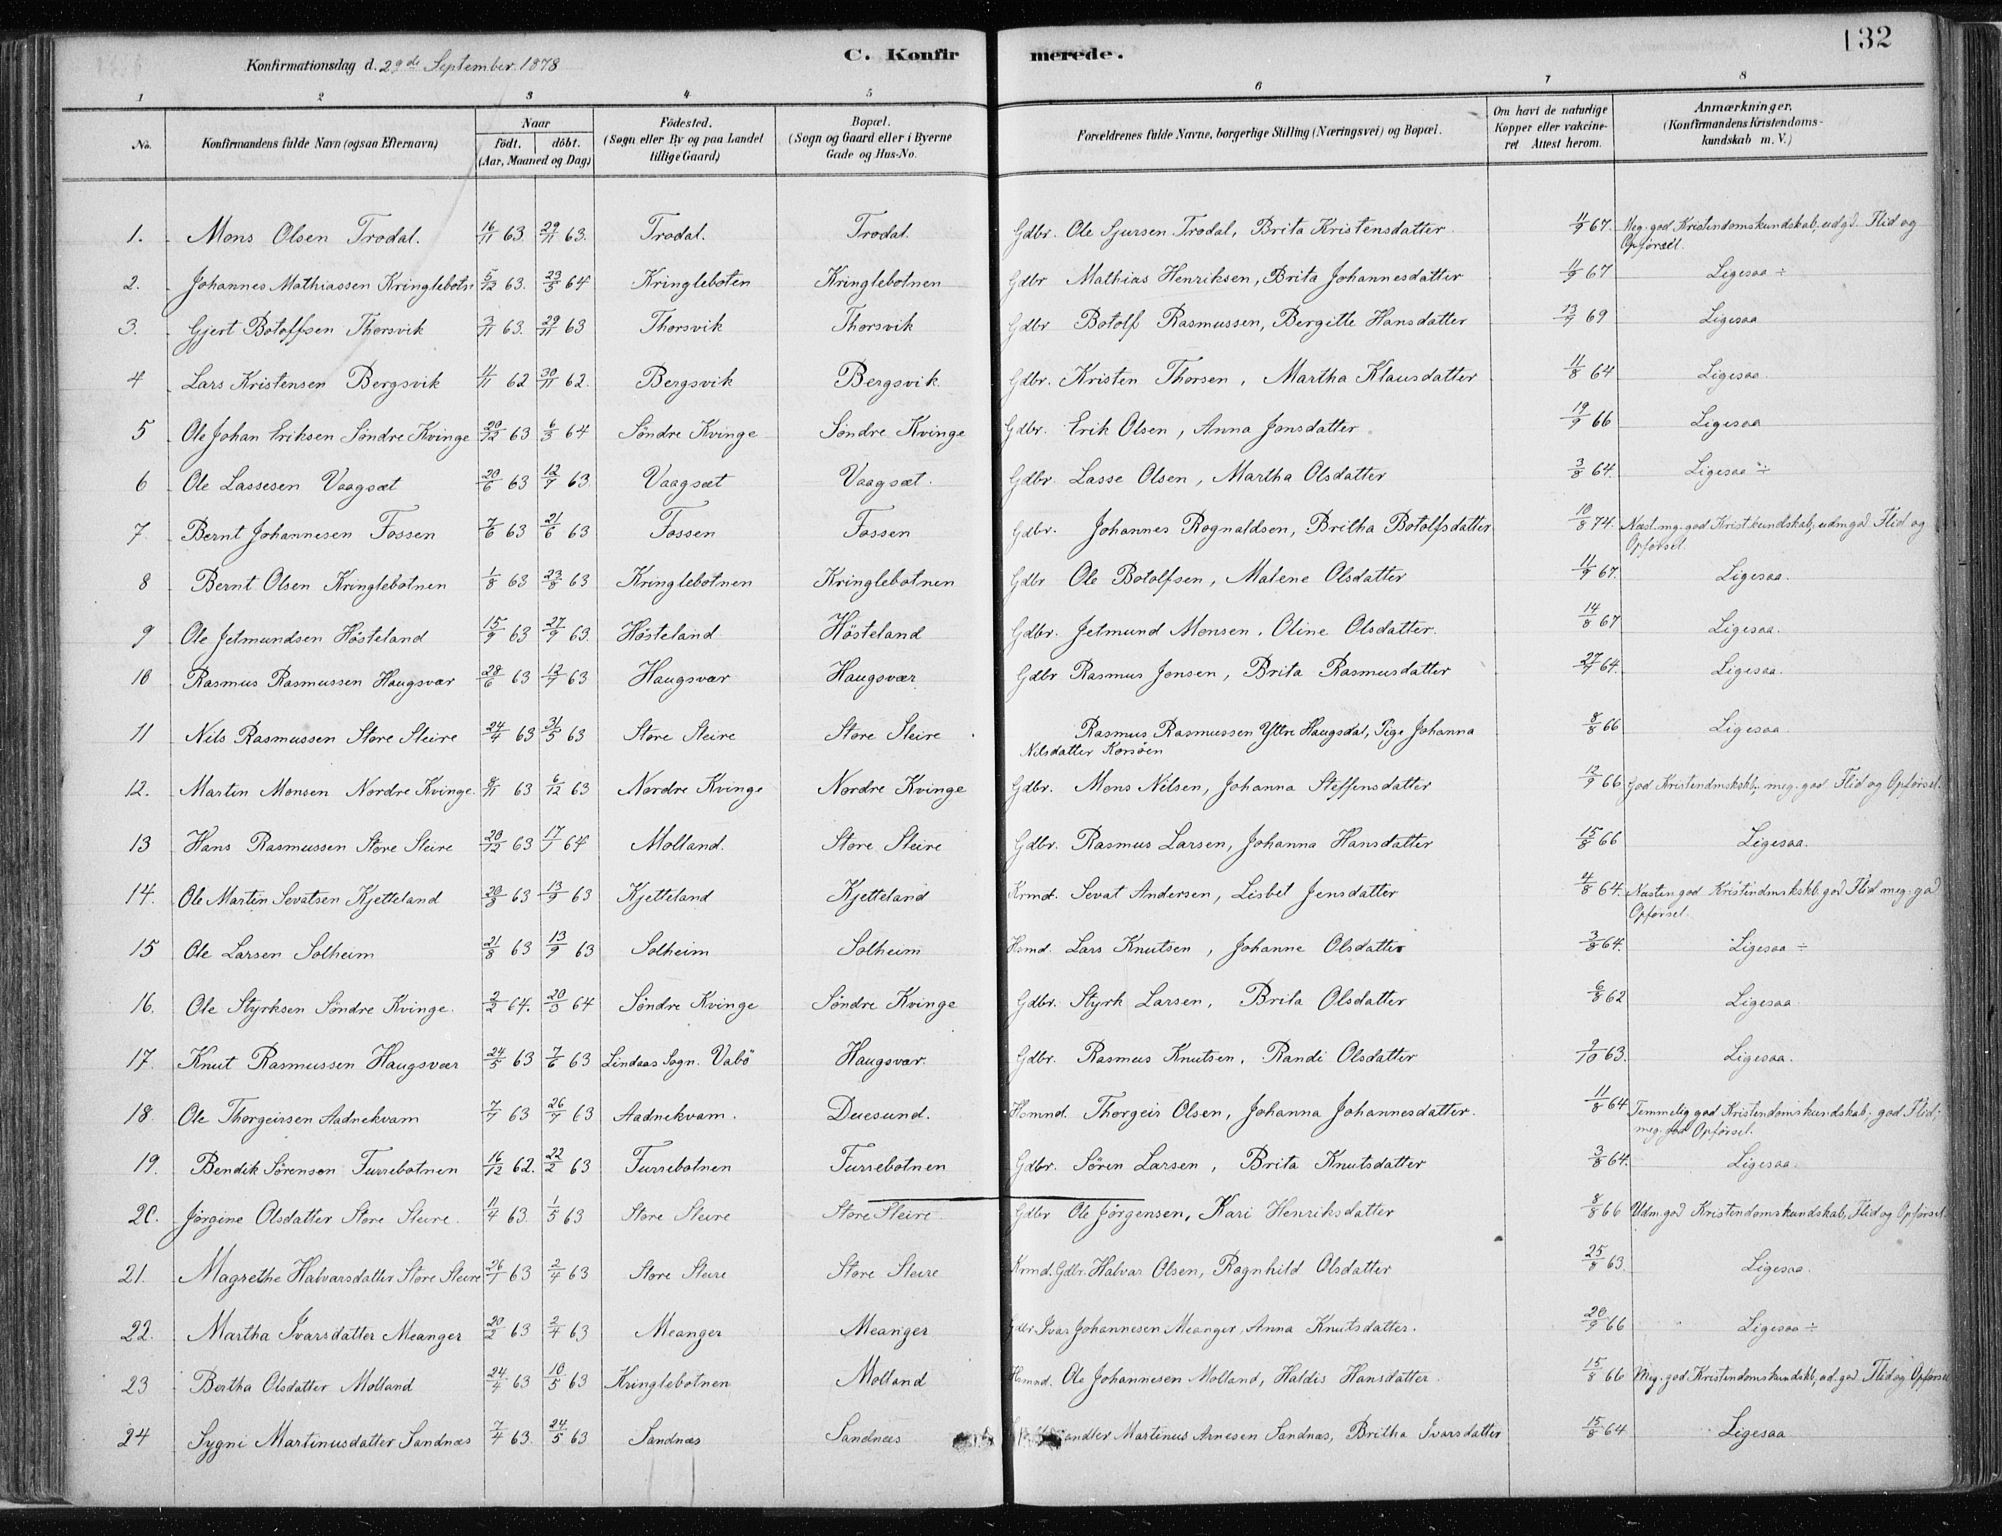 132
Konfirmationsdag d. 29de September 1878
C. Konfirmerede.
1 2 3 4 5 6 7 8
No. Konfirmandens fulde Navn (ogsaa Efternavn) Naar født. døbt. (Aar, Maaned og Dag) Födested. (Sogn eller By og paa Landet tillige Gaard) Bopæl. (Sogn og Gaard eller i Byerne Gade og Hus-No. Forældrenes fulde Navne, borgerlige Stilling (Næringsvei) og Bopæl. Om havt de naturlige Kopper eller vakcineret Attest herom. Anmærkninger. (Konfirmandens Kristendomskundskab m. V.)
1. Mons Olsen Trodal. 16/11 63 29/11 63. Trodal. Trodal. Gdbr. Ole Sjursen Trodal, Brita Kristensdatter 11/9 67. Meg. god Kristendomskundskab, udgd. Flid og
Opførsel.
2. Johannes Mathiassen Kringlebotn 5/12 63. 23/3 64 Kringleboten Kringlebotnen Gdbr Mathias Henriksen, Brita Johannesdatter 11/9 67 Ligesaa ÷
3. Gjert Botolfsen Thorsvik 3/11 63. 29/11 63 Thorsvik Thorsvik Gdbr Botolf Rasmussen, Bergitte Hansdatter 13/9 69 Ligesaa
4 Lars Kristensen Bergsvik 4/11 62 30/11 62. Bergsvik Bergsvik Gdbr. Kristen Thorsen, Martha Klausdatter 11/8 64 Ligesaa.
5 Ole Johan Eriksen Søndre Kvinge 20/12 63 6/3 64 Søndre Kvinge Søndre Kvinge Gdbr. Erik Olsen, Anna Jonsdatter. 19/9 66 Ligesaa
6 Ole Lassesen Vaagsæt 20/6 63 12/7 63 Vaagsæt Vaagsæt. Gdbr. Lasse Olsen, Martha Olsdatter 3/8 64. Ligesaa ÷
7 Bernt Johannesen Fossen 7/6 63 21/6 63 Fossen Fossen Gdbr. Johannes Rognaldsen, Britha Botolfsdatter 10/8 74. Næst. mg. god Krist.kundskab, udm god Flid og
Opførsel.
8 Bernt Olsen Kringlebotnen 1/8 63 23/8 63 Kringlebotnen Kringlebotnen Gdbr Ole Botolfsen, Malene Olsdatter 11/9 67. Ligesaa.
9 Ole Jetmundsen Høsteland 15/9 63 27/9 63. Høsteland Høsteland Gdbr. Jetmund Monsen, Oline Olsdatter. 14/8 67 Ligesaa.
10 Rasmus Rasmussen Haugsvær 28/6 63 12/7 63 Haugsvær Haugsvær Gdbr Rasmus Jensen, Brita Rasmusdatter 27/7 64. Ligesaa.
11 Nils Rasmussen Store Steire 24/4 63 31/5 63 Store Steire Store Steire Rasmus Rasmussen Yttre Haugsdal, Pige Johanna 8/8 66 Ligesaa.
Nilsdatter Korsøen
12. Martin Monsen Nordre Kvinge. 8/11 63 6/12 63 Nordre Kvinge Nordre Kvinge Gdbr. Mons Nilsen, Johanna Steffensdatter 12/9 66 God Kristendmskskb, meg. god Flid og Opførsel.
13 Hans Rasmussen Store Steire 20/12 63 17/1 64 Molland. Store Steire Gdbr. Rasmus Larsen, Johanna Hansdatter 15/8 66 Ligesaa.
14. Ole Martin Sevatsen Kjetteland 20/8 63 13/9 63 Kjetteland Kjetteland Krmd. Sevat Andersen, Lisbet Jensdatter 4/8 64. Næsten god Kristendmskskb. god Flid meg. god
Opførsel.
15 Ole Larsen Solheim 21/8 63 13/9 63 Solheim Solheim Hsmd. Lars Knutsen, Johanne Olsdatter 3/8 64. Ligesaa ÷
16. Ole Styrksen Søndre Kvinge. 2/2 64. 20/3 64 Søndre Kvinge Søndre Kvinge Gdbr. Styrk Larsen, Brita Olsdatter 6/8 62 Ligesaa
17. Knut Rasmussen Haugsvær 24/5 63 7/6 63 Lindaas Sogn. Vabø Haugsvær. Gdbr. Rasmus Knutsen, Randi Olsdatter 9/10 63. Ligesaa.
18. Ole Thorgeirsen Aadnekvam 7/7 63 26/7 63 Aadnekvam. Duesund. Hsmnd. Thorgeir Olsen, Johanna Johannesdatter. 11/8 64 Temmelig god Kristendomskundskab, god Flid,
meg. god Opførsel.
19. Bendik Sørensen Furrebotnen 16/12 62. 22/2 63 Furrebotnen Furrebotnen Gdbr. Sören Larsen, Brita Knutsdatter 3/8 64. Ligesaa.
20. Jørgine Olsdatter Store Steire. 11/4 63. 1/5 63 Store Steire Store Steire Gdbr Ole Jörgensen, Kari Henriksdatter 8/8 66 Udm. god Kristendomskundskab, Flid og Opførsel.
21. Magrethe Halvarsdatter Store Steire 26/1 63 2/4 63 Store Steire Store Steire Krmd. Gdbr. Halvar Olsen, Ragnhild Olsdatter 25/8 63. Ligesaa.
22. Martha Ivarsdatter Meanger 20/2 63 2/4 63 Meanger Meanger Gdbr Ivar Johannesen Meanger, Anna Knutsdatter. 20/9 66 Ligesaa ÷
23 Bertha Olsdatter Molland 24/4 63 10/5 63 Kringlebotnen Molland Hsmnd. Ole Johannesen Molland, Haldis Hansdatter. 15/8 66 Meg. god Kristendomskundskb, ud. god Flid og Opførsel
24 Sygni Martinusdatter Sandnæs 7/4 63. 24/5 63 Sandnæs Sandnæs andler Martinus Arnesen Sandnæs, Britha Ivarsdatter 15/8 64 Ligesaa